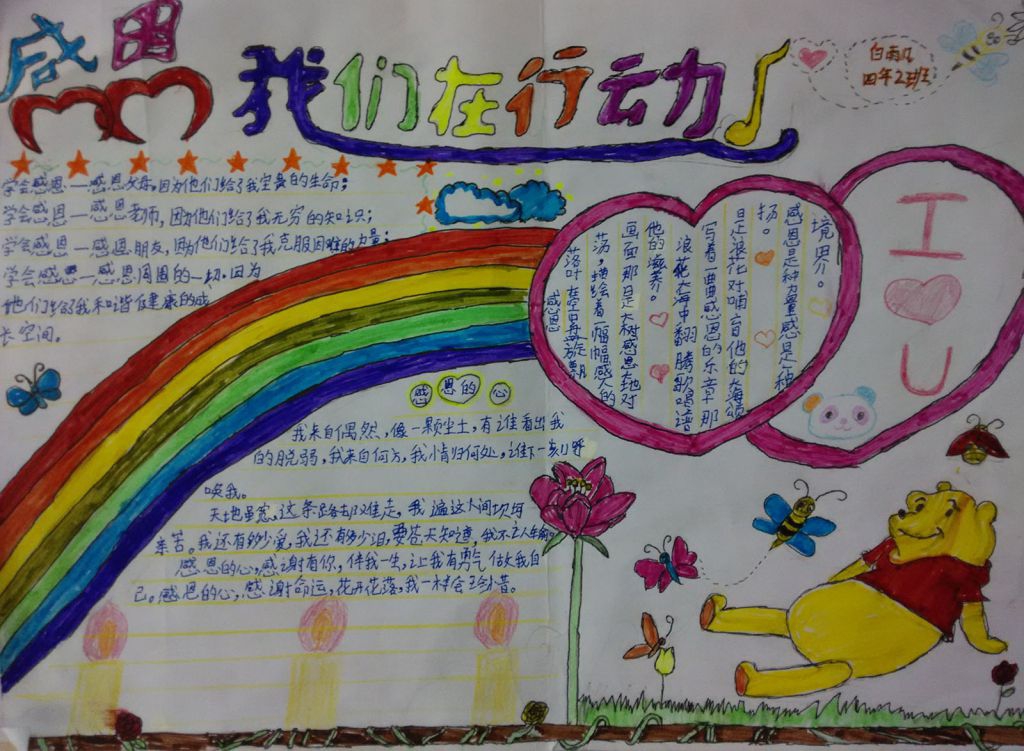 感恩
我们在行动
白雨凡
四年2班
学会感恩—感恩父母,因为他们给了我宝贵的生命;
学会感恩—感恩老师,因为他们给了我无穷的知识;
学会感恩—感恩朋友,因为他们给了我克服困难的力量;
学会感恩—感恩周围的一切,因为
他们给了我和谐健康的成
长空间。
感恩
落叶在空中盘旋飘
荡,描绘着一幅幅感人的
画面那是大树感恩大地对
他的滋养。
浪花大海中翻腾歌唱谱
写着一曲曲感恩的乐章那
是浪花对哺育他的大海颂
扬。
感恩是种力量感是种
境界。
I
U
感恩的心
我来自偶然,像一颗尘土,有谁看出我
的脱弱,我来自何方,我情归何处,谁下一刻呼
唤我。
天地虽宽,这条路却难走,我遍这人间坎坷
辛苦。我还有多少爱,我还有多少泪,要苍天知道,我不认输。
感恩的心,感谢有你,伴我一生,让我有勇气做我自
己。感恩的心,感谢命运,花开花落,我一样会珍惜。